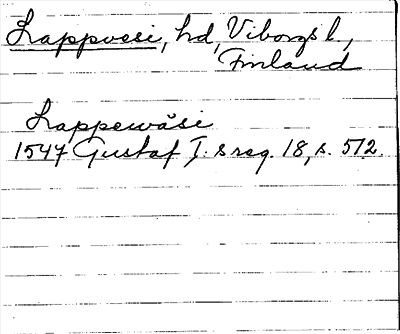 Lappvesi, hd, Viborgs l.,
Finland
Lappewäsi
1547 Gustaf I:s reg. 18, s. 512.